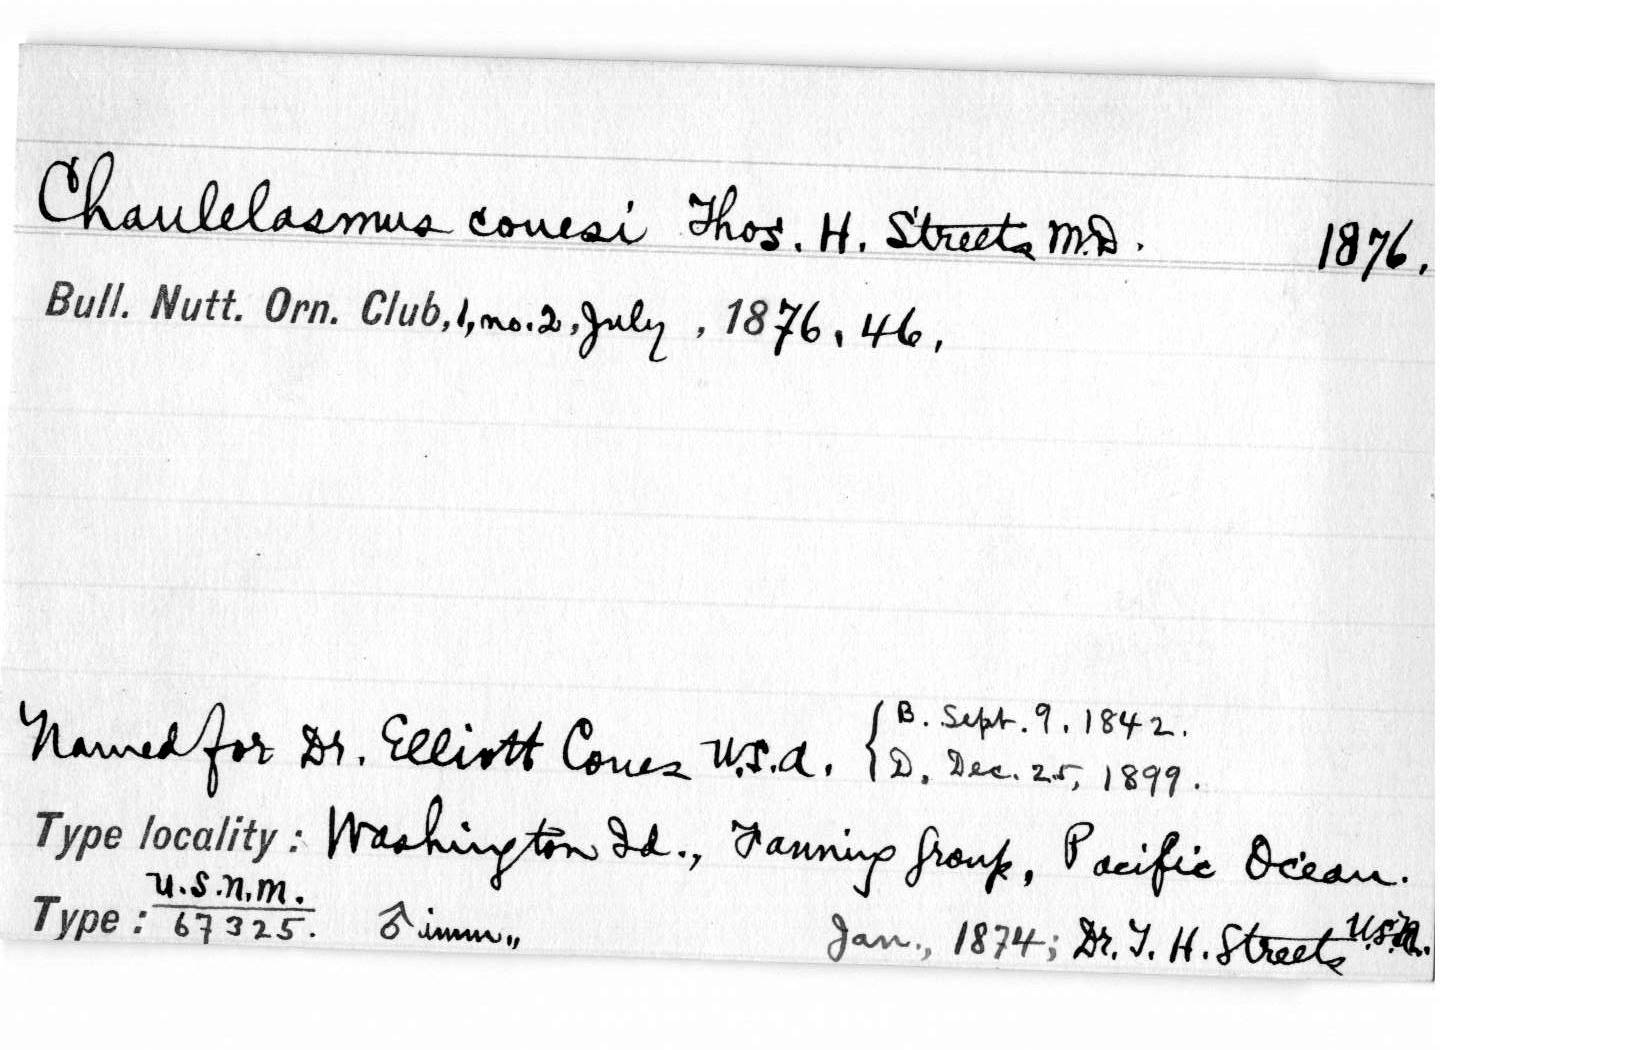 Chaulelasmus couesi Thos. H. Streets M.D. 1876.
Bull. Nutt. Orn. Club, 1, no. 2, July, 1876, 46,
Named for Dr. Elliott Coues U.S.A. { B. Sept. 9, 1842.
D. Dec. 25, 1899.
Type locality: Washington Id., Fanning Group, Pacific Ocean.
Type: U.S.N.M. 67325. ♂ imm., Jan., 1874; Dr. T. H. Streets U.S.N.